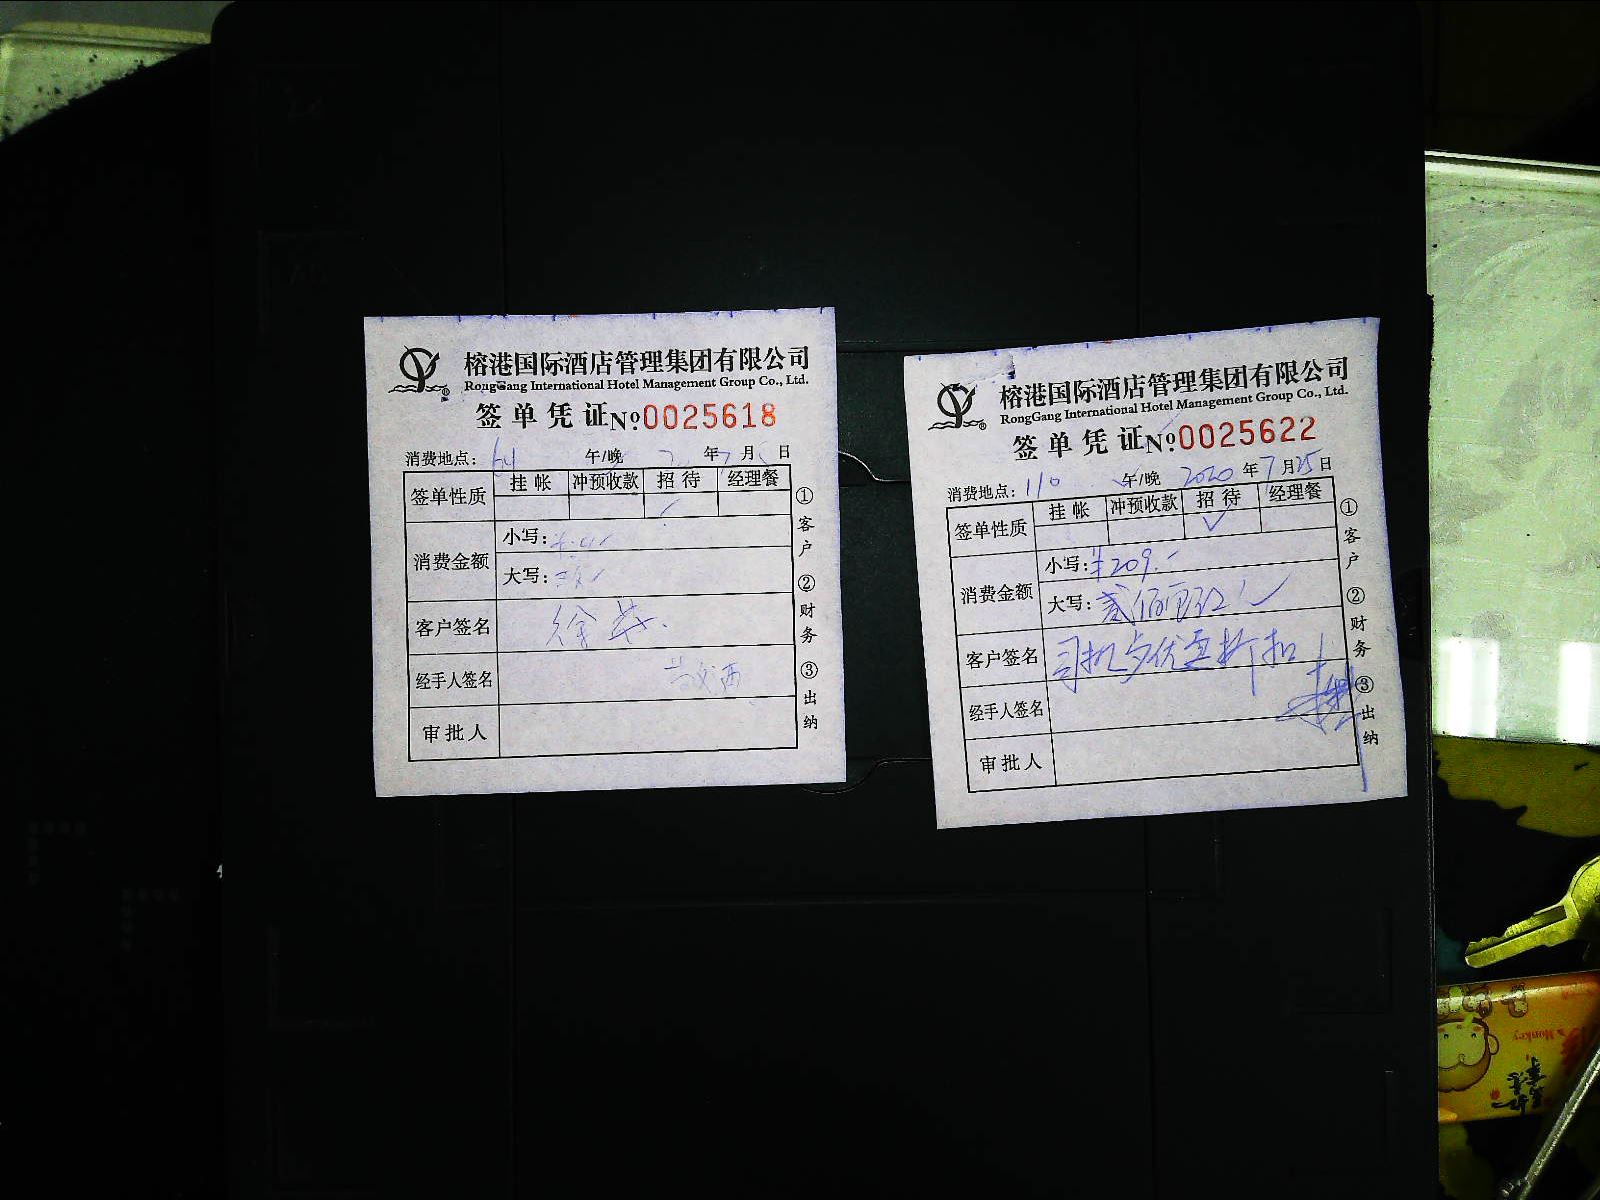 榕港国际酒店管理集团有限公司
RongGang International Hotel Management Group Co., Ltd.
签单凭证 No.0025618
消费地点： 午/晚 年7月 日
签单性质 挂帐 冲预收款 招待 经理餐
✓
消费金额 小写：
大写：
客户签名 徐
经手人签名
审批人
①客户 ②财务 ③出纳
榕港国际酒店管理集团有限公司
RongGang International Hotel Management Group Co., Ltd.
签单凭证 No.0025622
消费地点：110 午/晚 2020年7月25日
签单性质 挂帐 冲预收款 招待 经理餐
✓
消费金额 小写：¥209.-
大写：贰佰零玖
客户签名 司机与优惠折扣
经手人签名
审批人
①客户 ②财务 ③出纳
Monkey